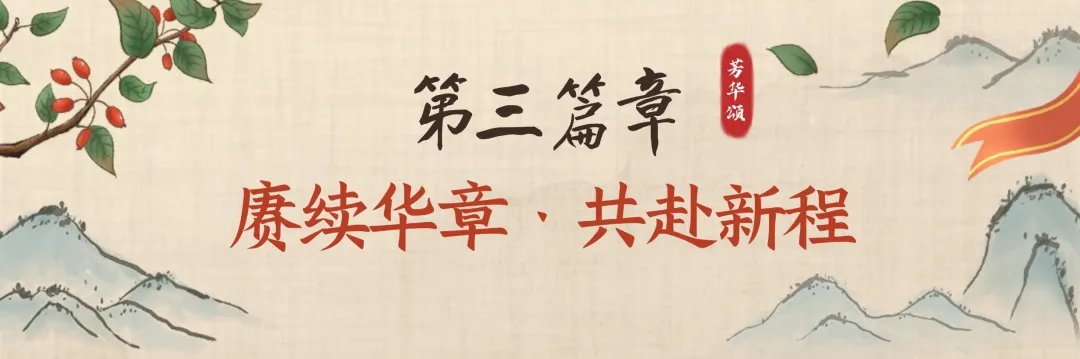 第三篇章
芳华颂
赓续华章·共赴新程